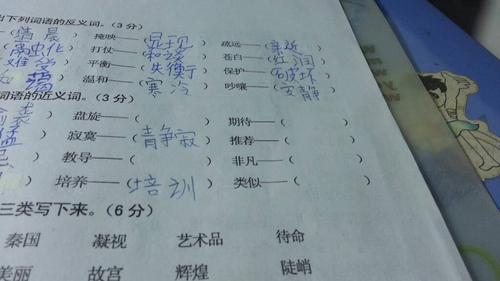 出下列词语的反义词。(3分)
晨) 掩映——(显现) 疏远——(亲近
打仗——(和谈) 苍白——(红润
难 平衡——(失衡) 保护——(破坏
温和——(寒冷) 吵嚷——(安静
词语的近义词。(3分)
) 盘旋——( ) 期待——(
寂寞——(青静寂) 推荐——(
) 教导——( ) 非凡——(
培养——(培训) 类似——(
三类写下来。(6分)
秦国 凝视 艺术品 待命
美丽 故宫 辉煌 陡峭